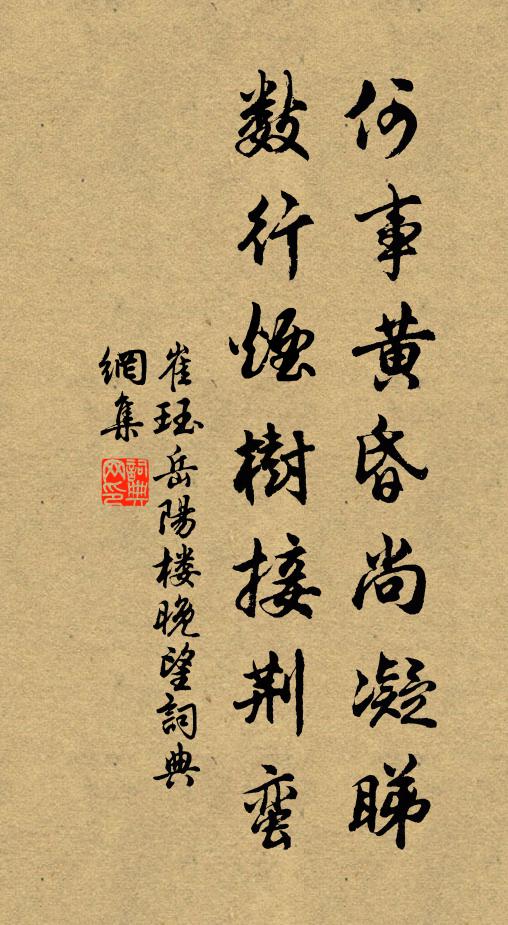 何事黄昏尚凝睇
数行煙樹接荆蛮
崔珏岳陽楼晚望詞典
網集
詞典
网印